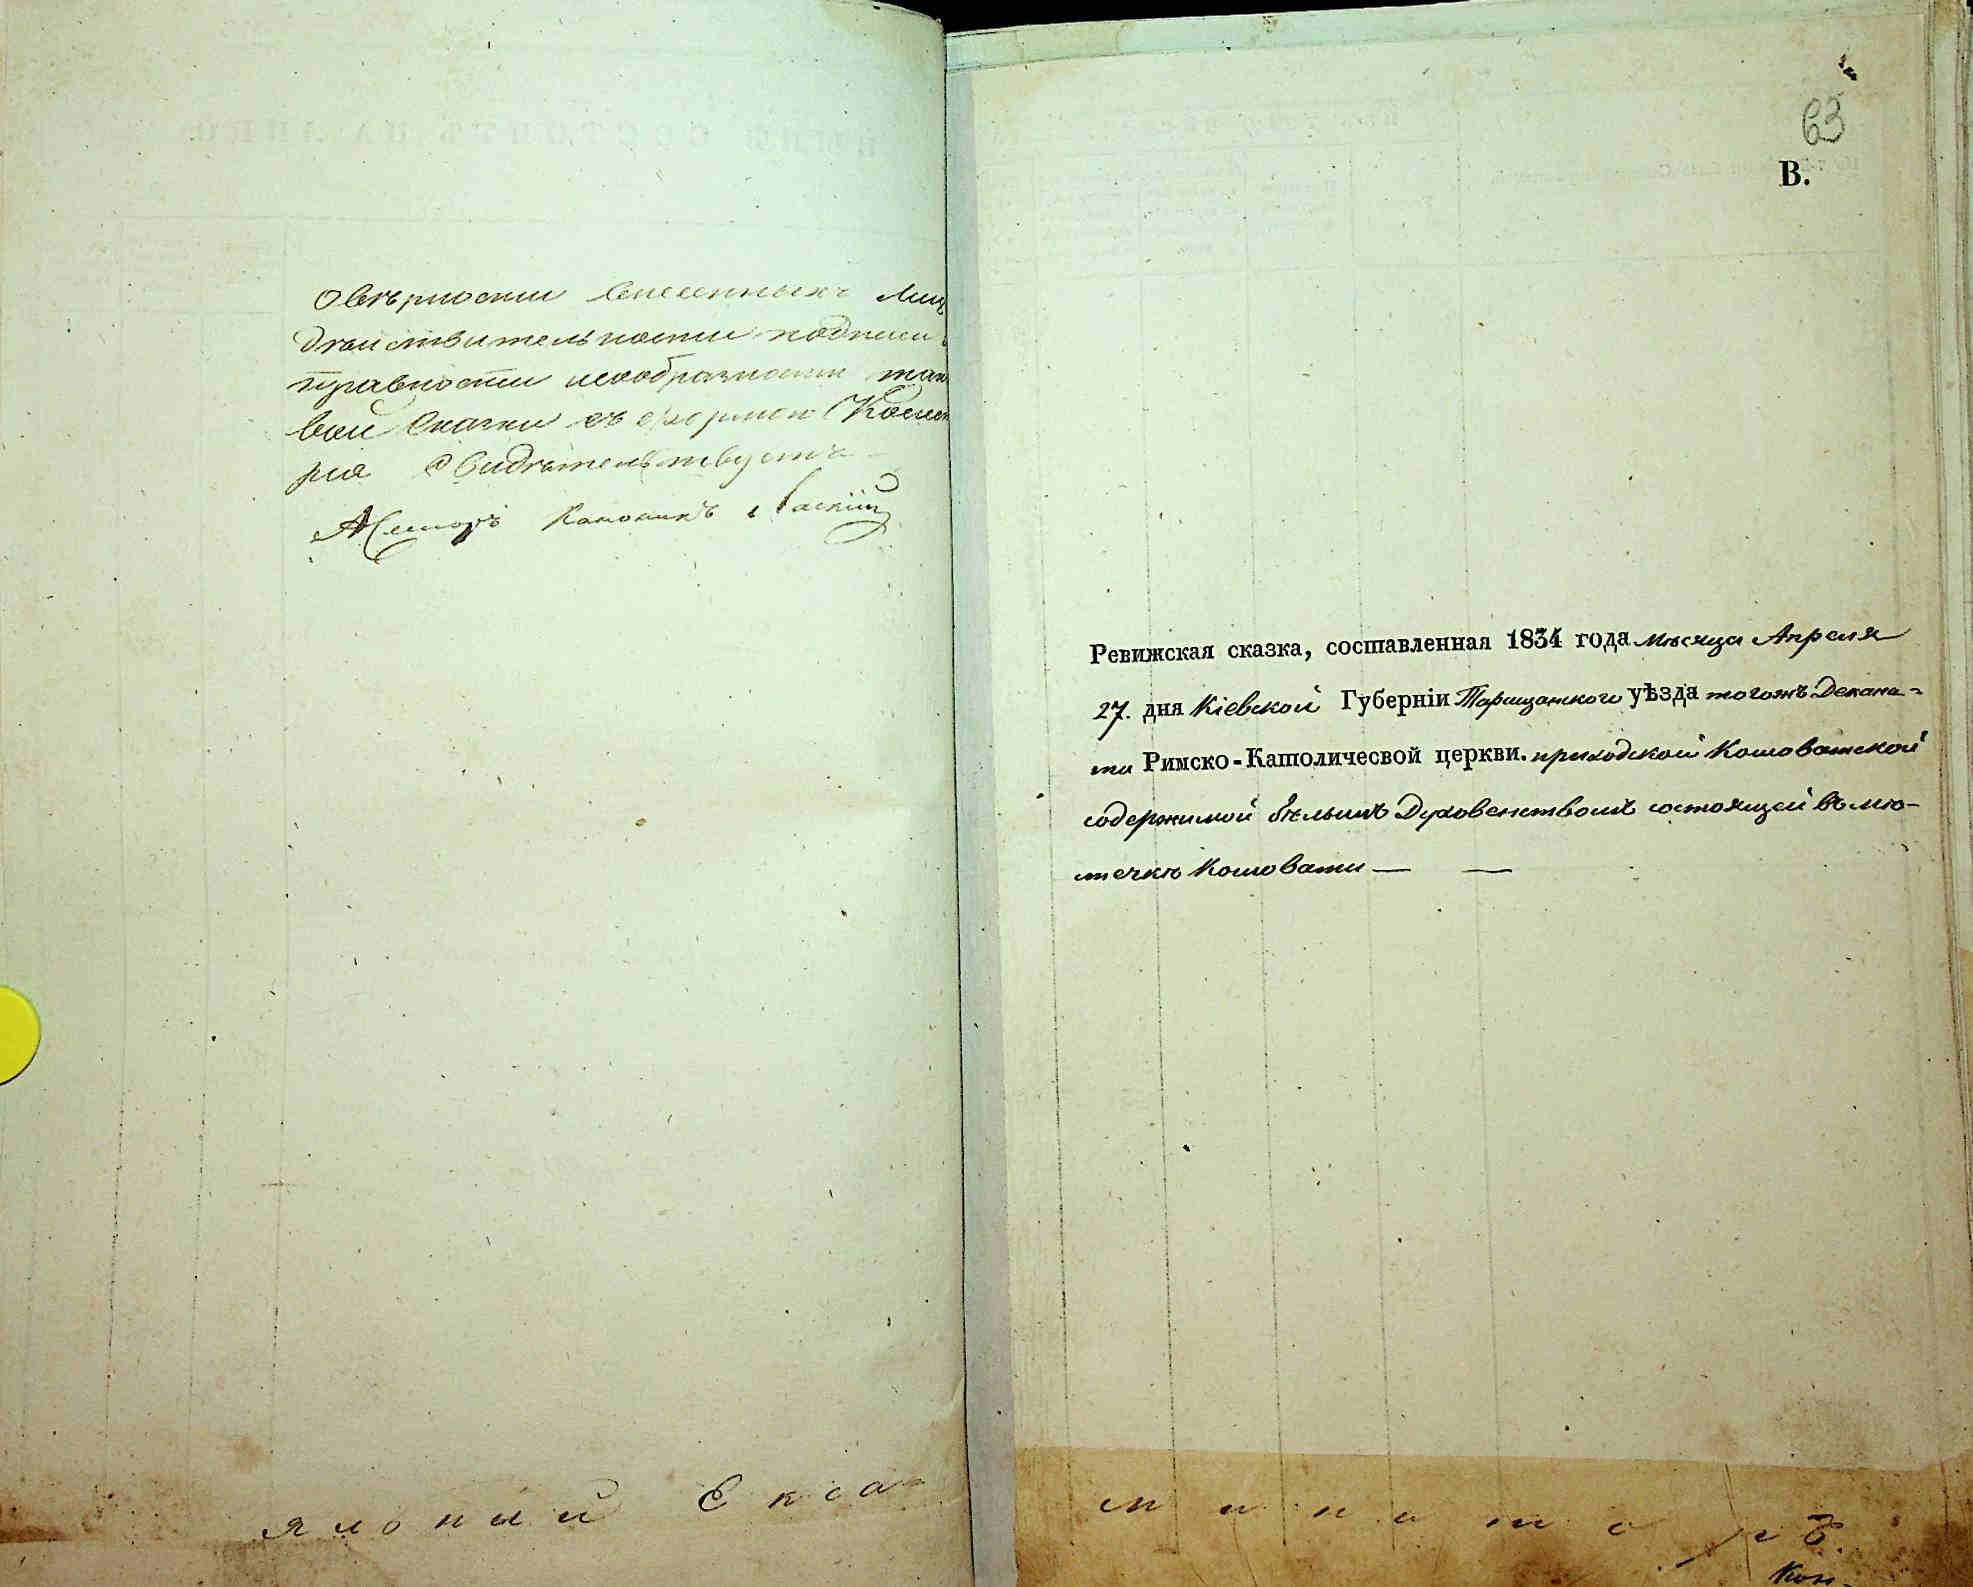 О вѣрности внесенныхъ лицъ
дѣйствительности подписи
правности и сообразности тако
вой сказки съ формою Консисто
рія свидѣтельствуетъ
Асессоръ Каноникъ
яло ный Екса
63
В.
Ревижская сказка, составленная 1834 года мѣсяца Апреля
27. дня Кіевской Губерніи Таращанского уѣзда тогожъ Декана-
та Римско-Католичесвой церкви. приходской Кошоватской
содержимой бѣлымъ Духовенствомъ состоящей въ мѣ-
стечкѣ Кошовати — —
минаторъ.
Кон